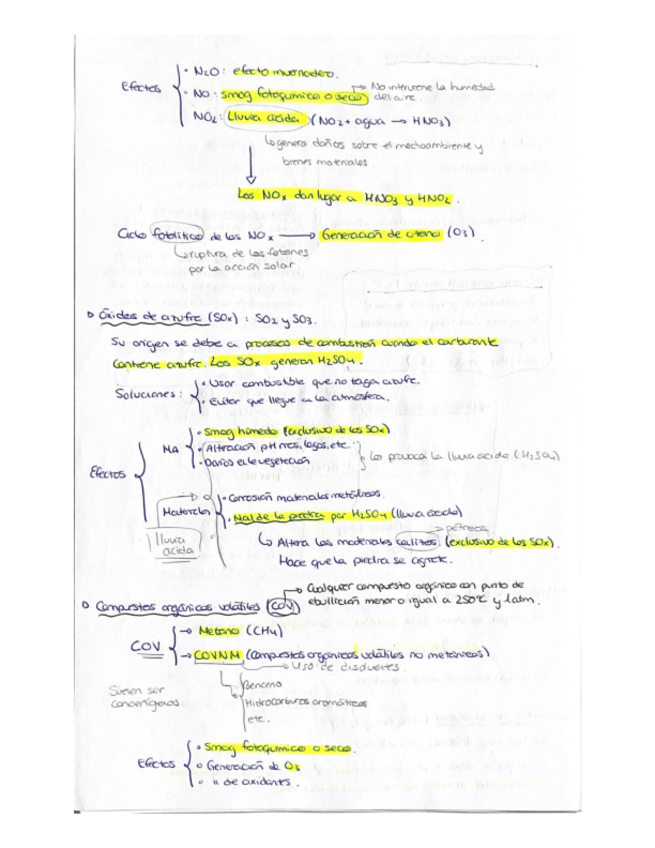 Efectos
· N2O: efecto invernadero.
· NO: smog fotoquímico o seco → No interviene la humedad del aire.
NO2: Lluvia ácida (NO2 + agua → HNO3)
↳ genera daños sobre el medioambiente y
bienes materiales.
Los NOx dan lugar a HNO3 y HNO2.
Ciclo fotolítico de los NOx → Generación de ozono (O3).
↳ ruptura de los fotones
por la acción solar
Óxidos de azufre (SOx): SO2 y SO3.
Su origen se debe a procesos de combustión cuando el carburante
contiene azufre. Los SOx generan H2SO4.
Soluciones:
· Usar combustible que no tenga azufre.
· Evitar que llegue a la atmósfera.
Efectos
MA
· Smog húmedo (exclusivo de los SOx)
· Alteración pH ríos, lagos, etc.
· Daños a la vegetación
Lo provoca la lluvia ácida (H2SO4)
Materiales
· Corrosión materiales metálicos.
· Mal de la piedra por H2SO4 (lluvia ácida)
→ pétreos
↳ Altera los materiales calizos (exclusivo de los SOx).
Hace que la piedra se agriete.
lluvia
ácida
→ Cualquier compuesto orgánico con punto de
ebullición menor o igual a 250ºC y 1atm.
Compuestos orgánicos volátiles (COV)
COV
→ Metano (CH4)
→ COVNM (compuestos orgánicos volátiles no metánicos)
→ Uso de disolventes.
Suelen ser
cancerígenos.
Benceno
Hidrocarburos aromáticos
etc.
Efectos
· Smog fotoquímico o seco.
· Generación de O3
· " de oxidantes.